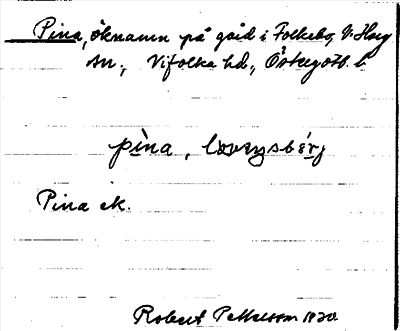 Pina, öknamn på gård i Folkebo, V. Harg
sn., Vifolka hd., Östergötl. l.
pìna,
Pina ek.
Robert Pettersson 1930